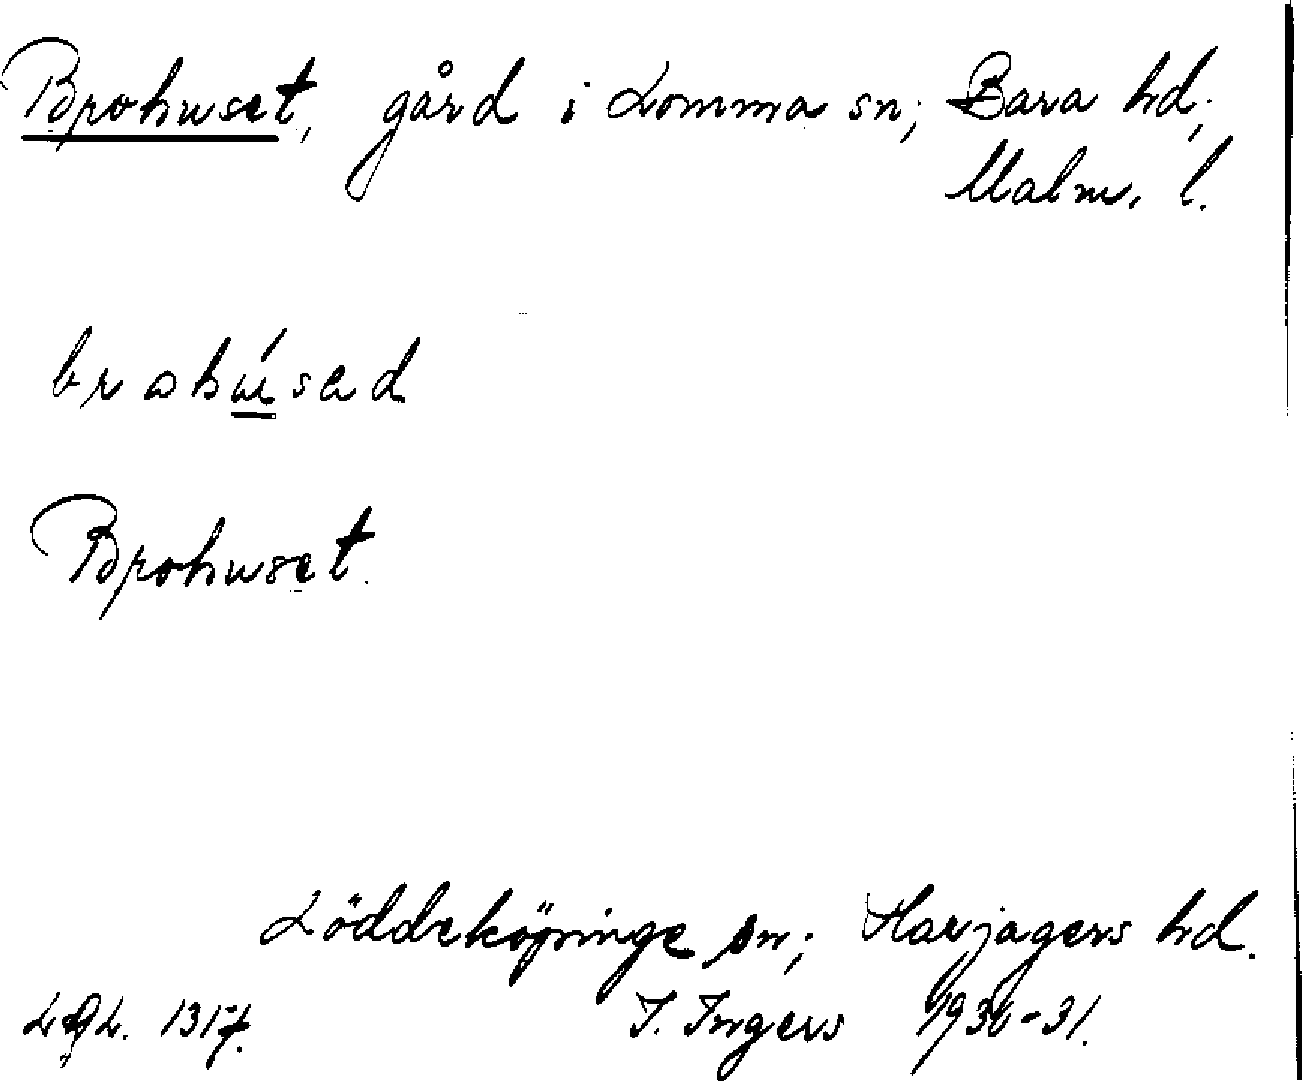 Brohuset, gård i Lomma sn; Bara hd;
Malm. l.
brohúsad
Brohuset.
Löddeköpinge sn; Harjagers hd.
1317. I. Ingers 1930-31.